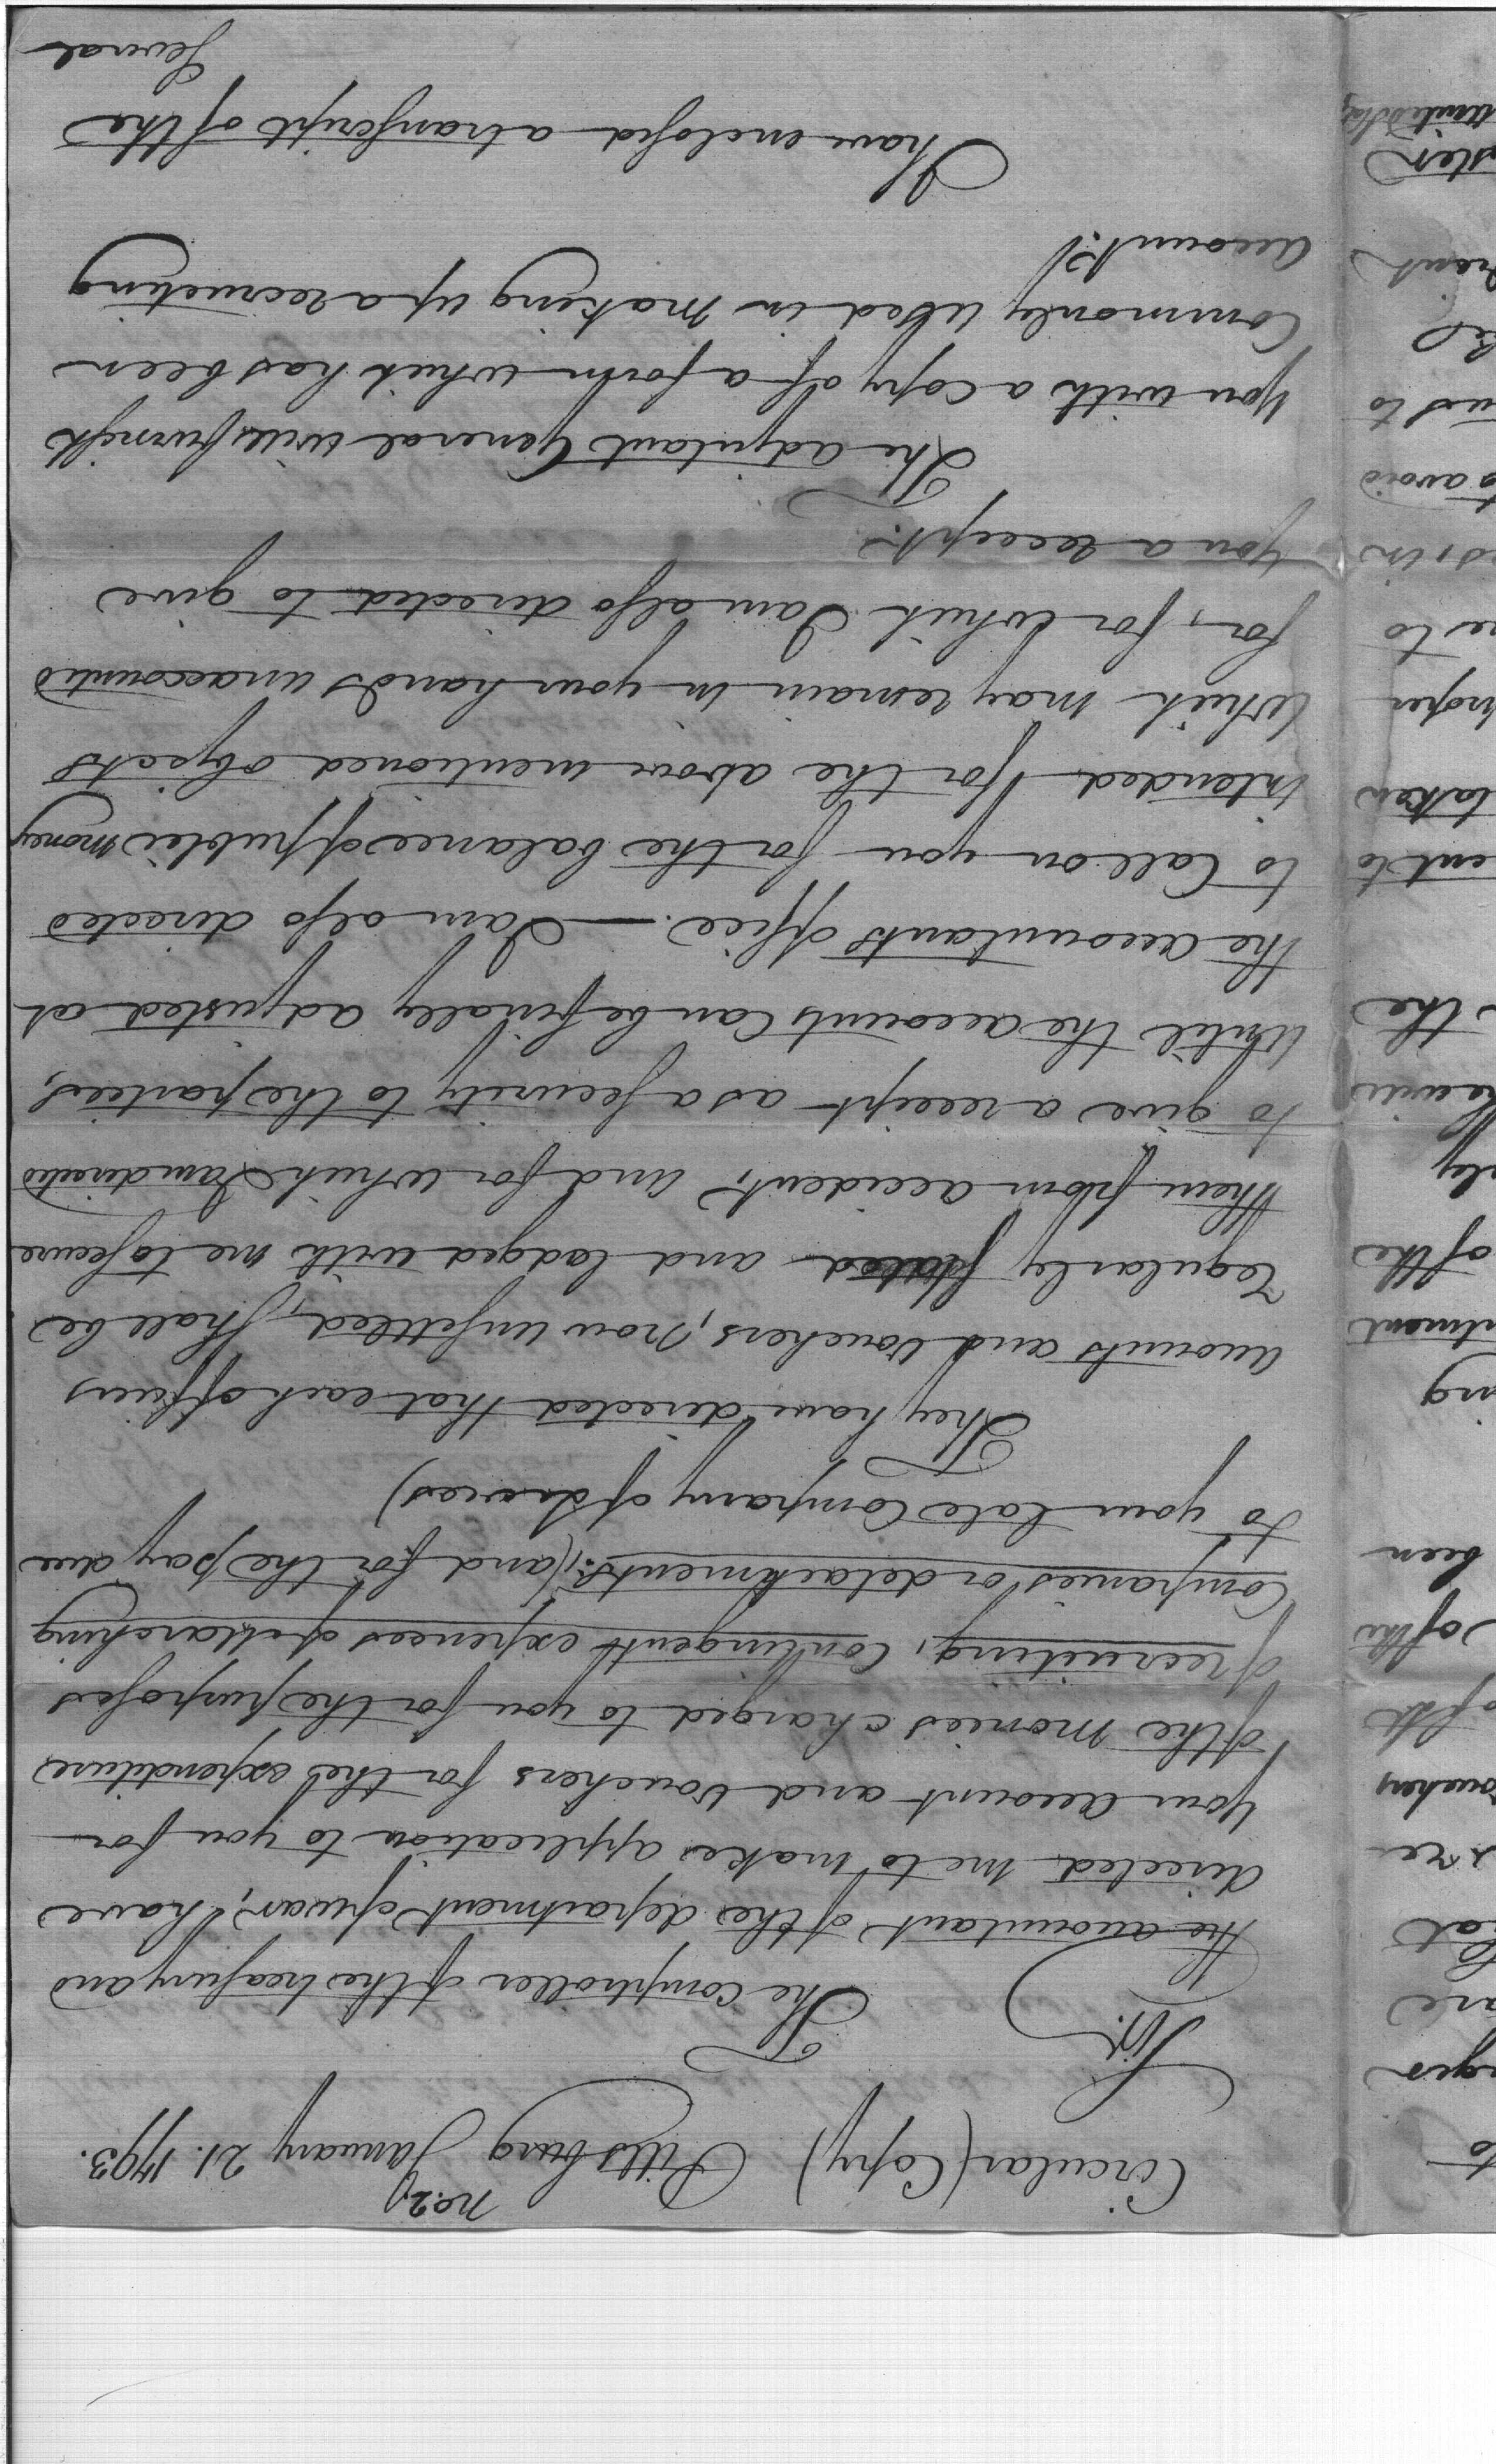 No. 2
Circular (Copy) Pittsburg January 21. 1793.
Sir.
The comptroller of the treasury and
the accountant of the department of war, have
directed me to make application to you for
your account and vouchers for the expenditure
of the monies charged to you for the purposes
of recruiting, Contingent expences of Marching
Companies or detachments: (and for the pay due
to your late Company of levies)
They have directed that each officers
accounts and vouchers, now unsettled, shall be
regularly stated and lodged with me to secure
them from accident, and for which I am directed
to give a receipt as a security to the parties,
Until the accounts Can be finally adjusted at
the accountants office. — I am also directed
to Call on you for the balance of public money
intended for the above mentioned objects
Which may remain in your hands unaccounted
for, for Which I am also directed to give
you a receipt.
The adjutant General will furnish
you with a copy of a form which has been
Commonly used in making up a recruiting
account.
I have enclosed a transcript of the
Several
to
are
hat
ouchers
of the
been
ing
of the
ly
the
ent to
taken
proper
es, in
to avoid